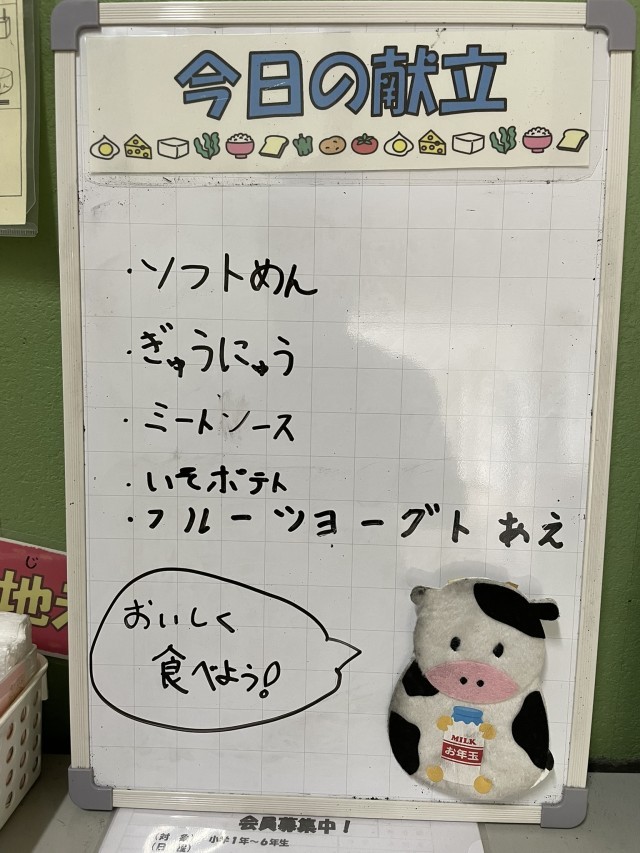 今日の献立
・ソフトめん
・ぎゅうにゅう
・ミートソース
・いそポテト
・フルーツヨーグトあえ
おいしく
食べよう!
MILK
お年玉
じ
地
会員募集中!
(対象) 小学1年〜6年生